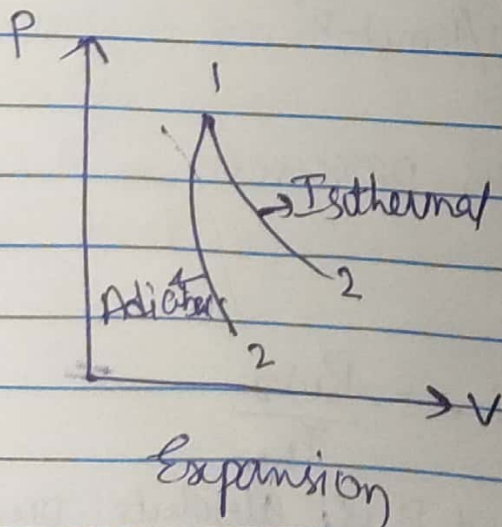 P
1
Isothermal
2
Adiabatic
2
V
Expansion